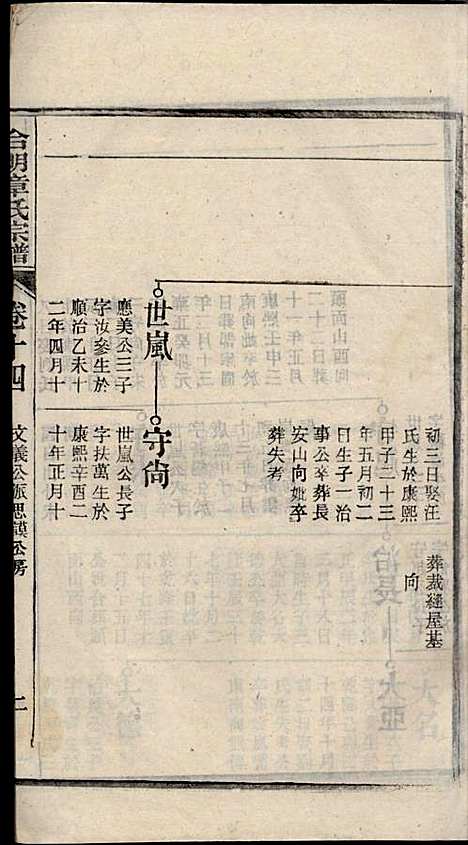 初三日娶汪
氏生於康熙
甲子二十三
年五月初二
日生子一治
事公卒葬長
安山向妣卒
葬失考
葬裁縫屋基
向
世嵐
守尙
應美公三子
字汝參生於
順治乙未十
二年四月十
世嵐公長子
字扶萬生於
康熙辛酉二
十年正月十
合朝章氏宗譜
卷十四
文義公派思謨公房